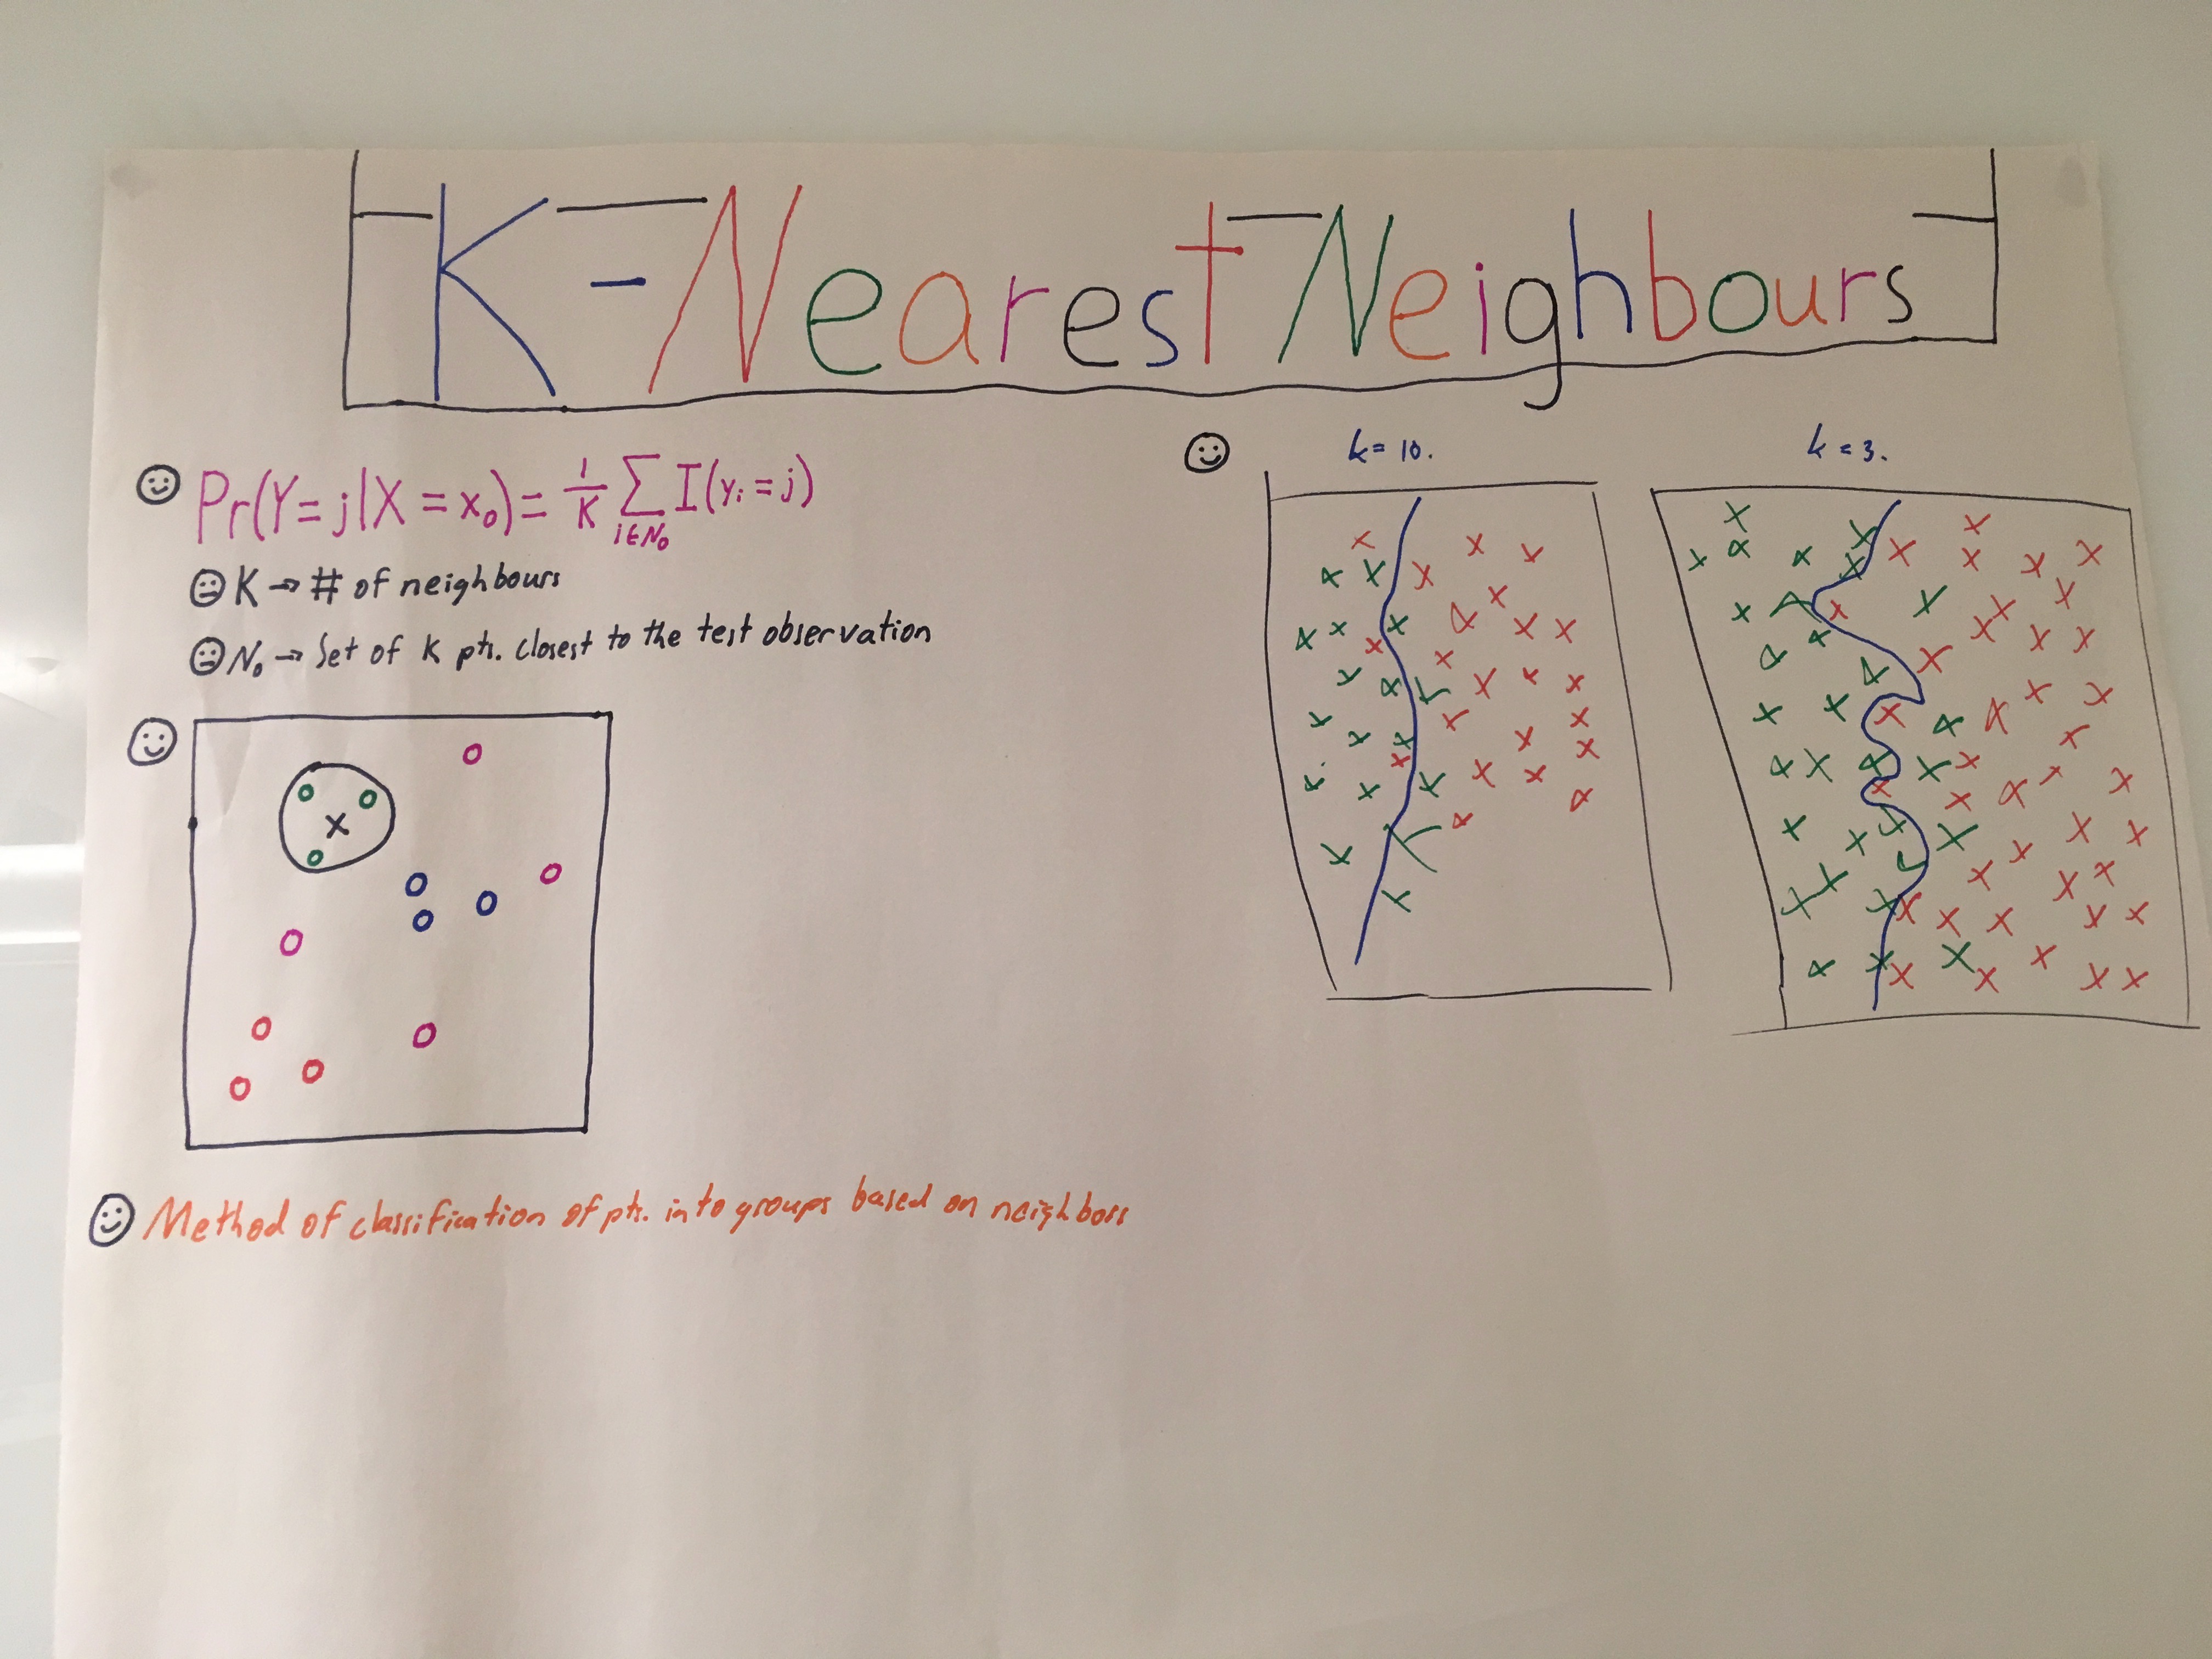 K-Nearest Neighbours
Pr(Y=j|X=x₀)= 1/K Σ i∈N₀ I(yᵢ=j)
K → # of neighbours
N₀ → Set of K pts. closest to the test observation
x
Method of classification of pts. into groups based on neighbors
k=10.
k=3.